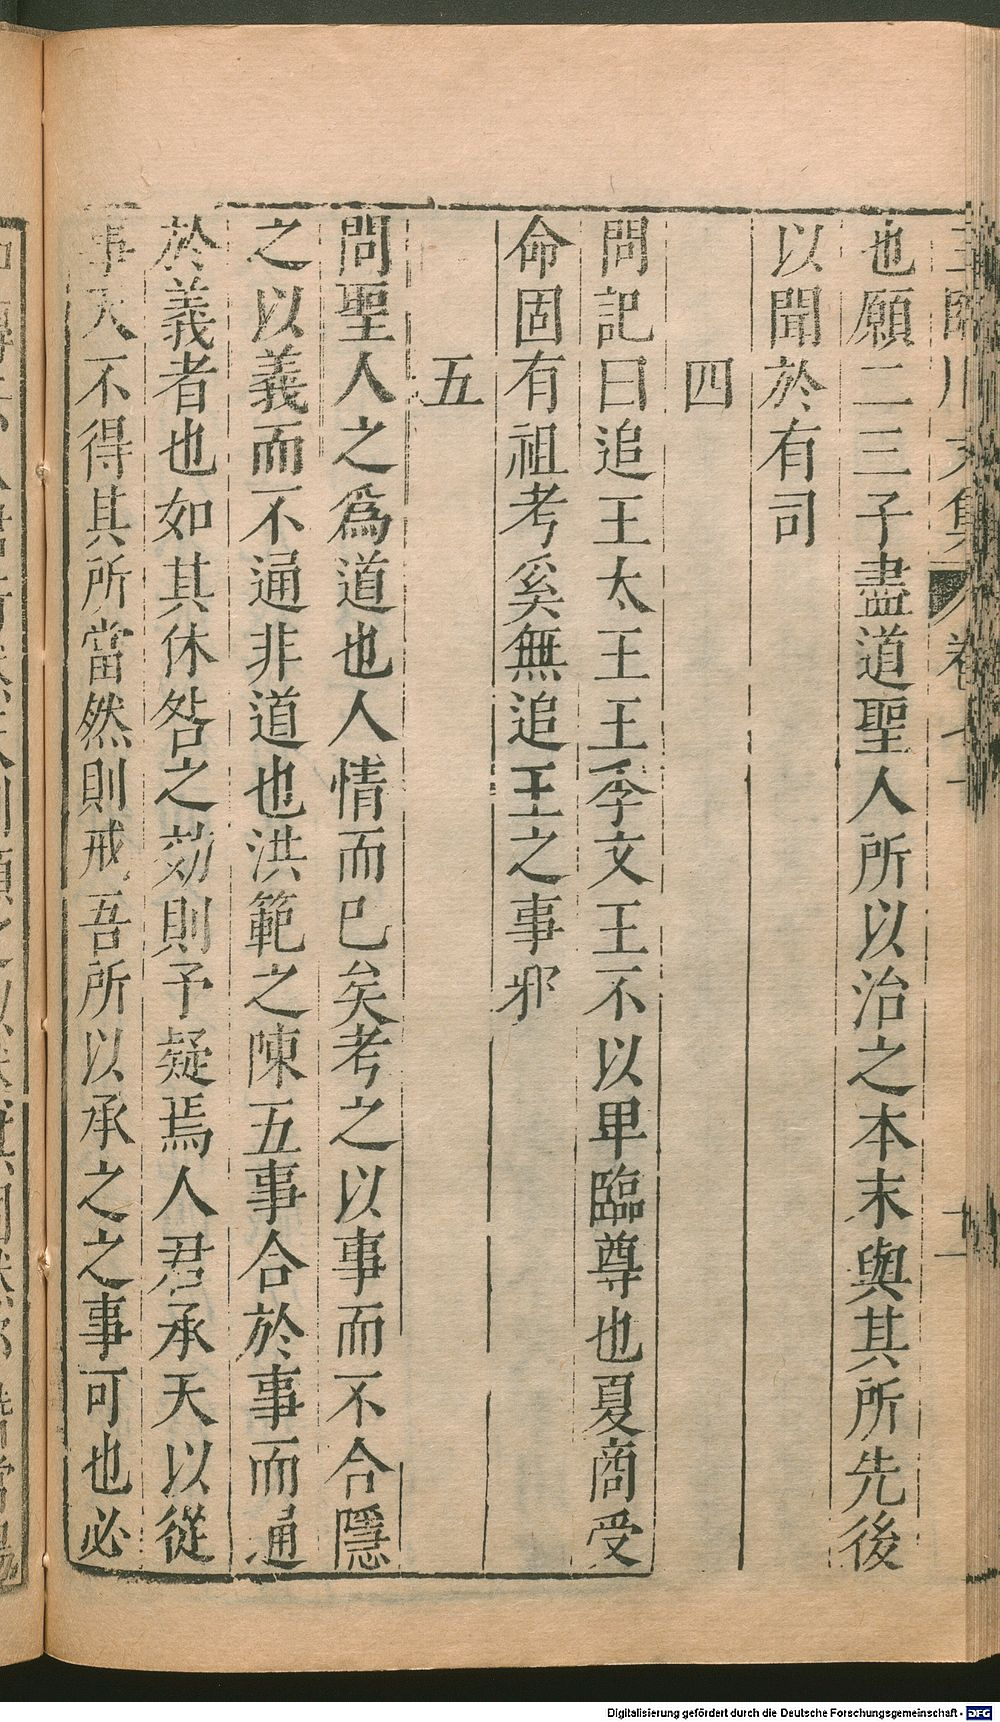 也願二三子盡道聖人所以治之本末與其所先後
以聞於有司
四
問記曰追王太王王季文王不以卑臨尊也夏商受
命固有祖考奚無追王之事邪
五
問聖人之爲道也人情而已矣考之以事而不合隱
之以義而不通非道也洪範之陳五事合於事而通
於義者也如其休咎之効則予疑焉人君承天以從
事天不得其所當然則戒吾所以承之之事可也必
Digitalisierung gefördert durch die Deutsche Forschungsgemeinschaft - DFG